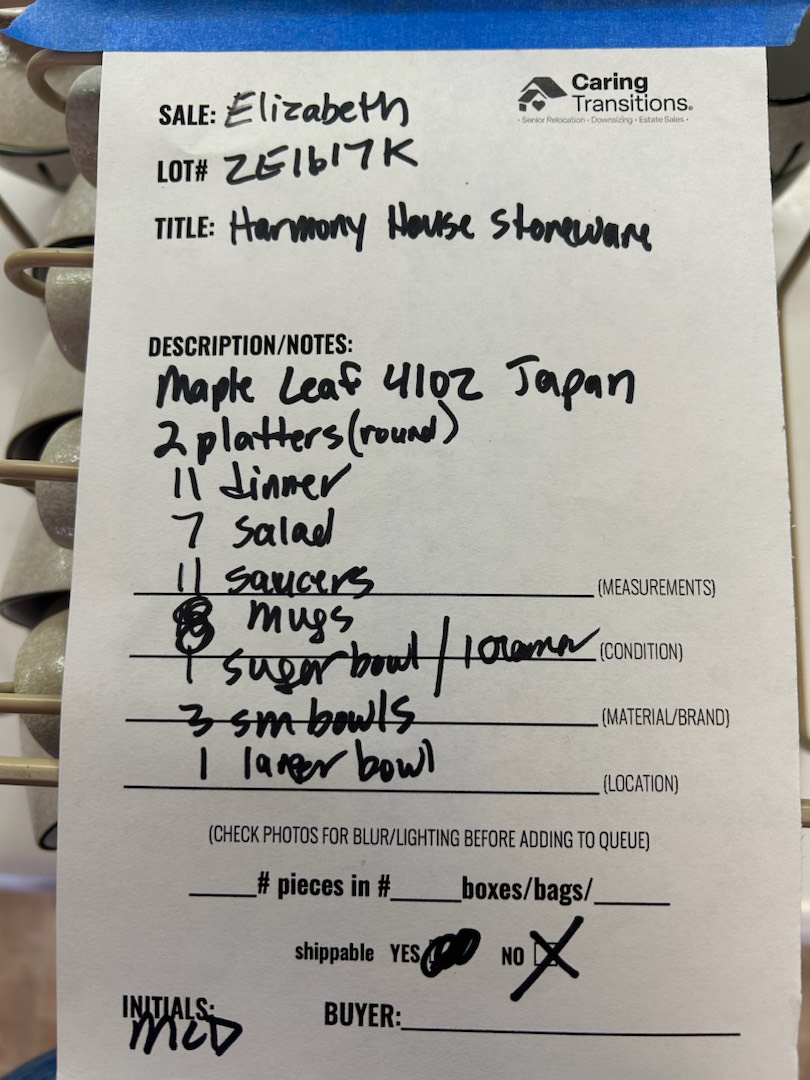 Caring
Transitions®
• Senior Relocation • Downsizing • Estate Sales •
SALE: Elizabeth
LOT# ZE1617K
TITLE: Harmony House Stoneware
DESCRIPTION/NOTES:
Maple Leaf 4102 Japan
2 platters (round)
11 dinner
7 salad
11 saucers (MEASUREMENTS)
8 mugs
1 sugar bowl / 1 creamer (CONDITION)
3 sm bowls (MATERIAL/BRAND)
1 larger bowl
(LOCATION)
(CHECK PHOTOS FOR BLUR/LIGHTING BEFORE ADDING TO QUEUE)
____# pieces in #____boxes/bags/____
shippable YES NO X
INITIALS: MCD
BUYER:____